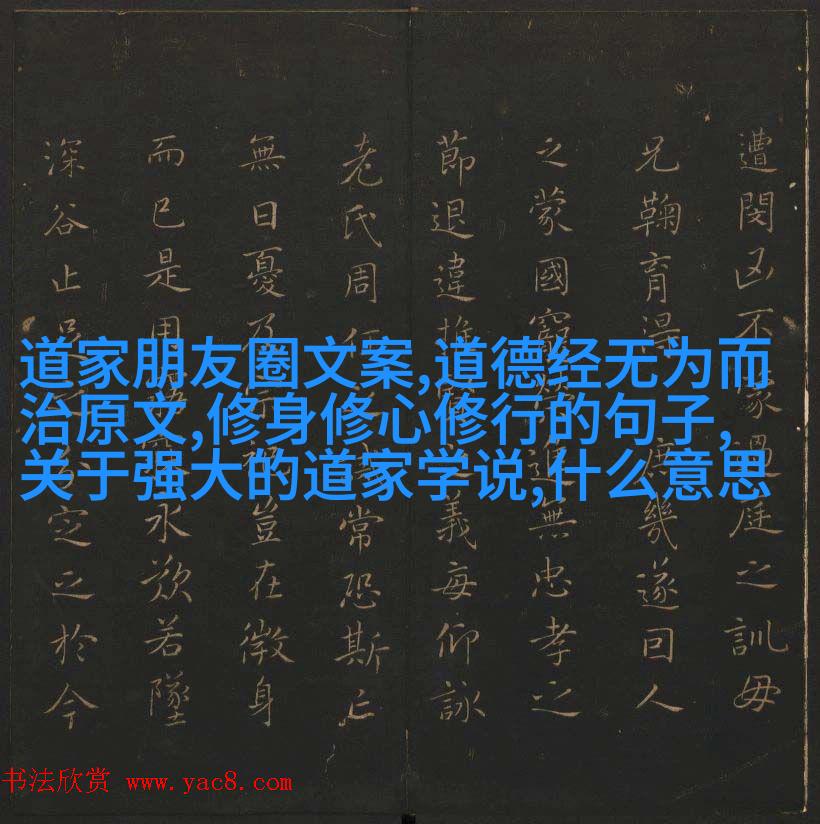 遭閔凶不蒙過庭之訓毋
兄鞠育得庶幾遂因人
之蒙國寵進無忠孝之
節退違推義每仰詠
老氏周任常恐斯亡
無日憂及宗祀豈在微身
而已是用永歎若墜
深谷止足定之於今
道家朋友圈文案,道德经无为而
治原文,修身修心修行的句子,
关于强大的道家学说,什么意思
书法欣赏 www.yac8.com